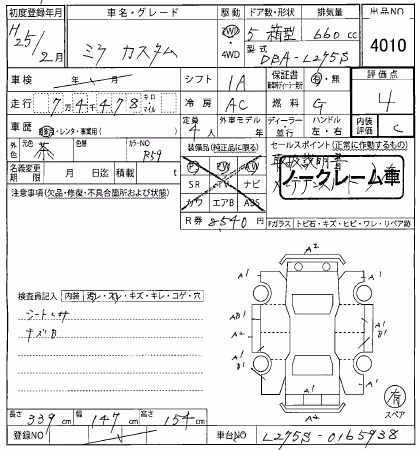 初度登録年月
車名・グレード
駆動
ドア数・形状
排気量
出品NO
H25/2月
ミラ カスタム
2WD
4WD
5 箱型
660 cc
型式
DBA-L275S
4010
車検
年 月
シフト
IA
保証書
有・無
評価点
走行
7万4千478
キロ・マイル
冷房
AC
燃料
G
4
車歴
自家・レンタ・事業用( )
定員
4人
外車モデル
年
ディーラー
並行
ハンドル
左・右
内装評価
C
外色
元色
茶
色替
カラーNO
R59
装備品(純正品に限る)
セールスポイント(正常に作動するもの)
取扱説明書
メンテナンスノート
名義変更期限
月 日迄
積載
t
PS
PW
SR
TV
ナビ
カワ
エアB
ABS
ノークレーム車
注意事項(欠品・修復・不具合箇所および状態)
R券
8540円
Fガラス
トビ石・キズ・ヒビ・ワレ・リペア跡
検査員記入
内装
汚レ・スレ・キズ・キレ・コゲ・穴
シートヒサ
キズB
A2
A1
A1
AD1
A2
A1
B1
A1
A1
B1
A1
A1
A2
有
スペア
長さ
339cm
幅
147cm
高さ
154cm
登録NO
車台NO
L275S-0165938